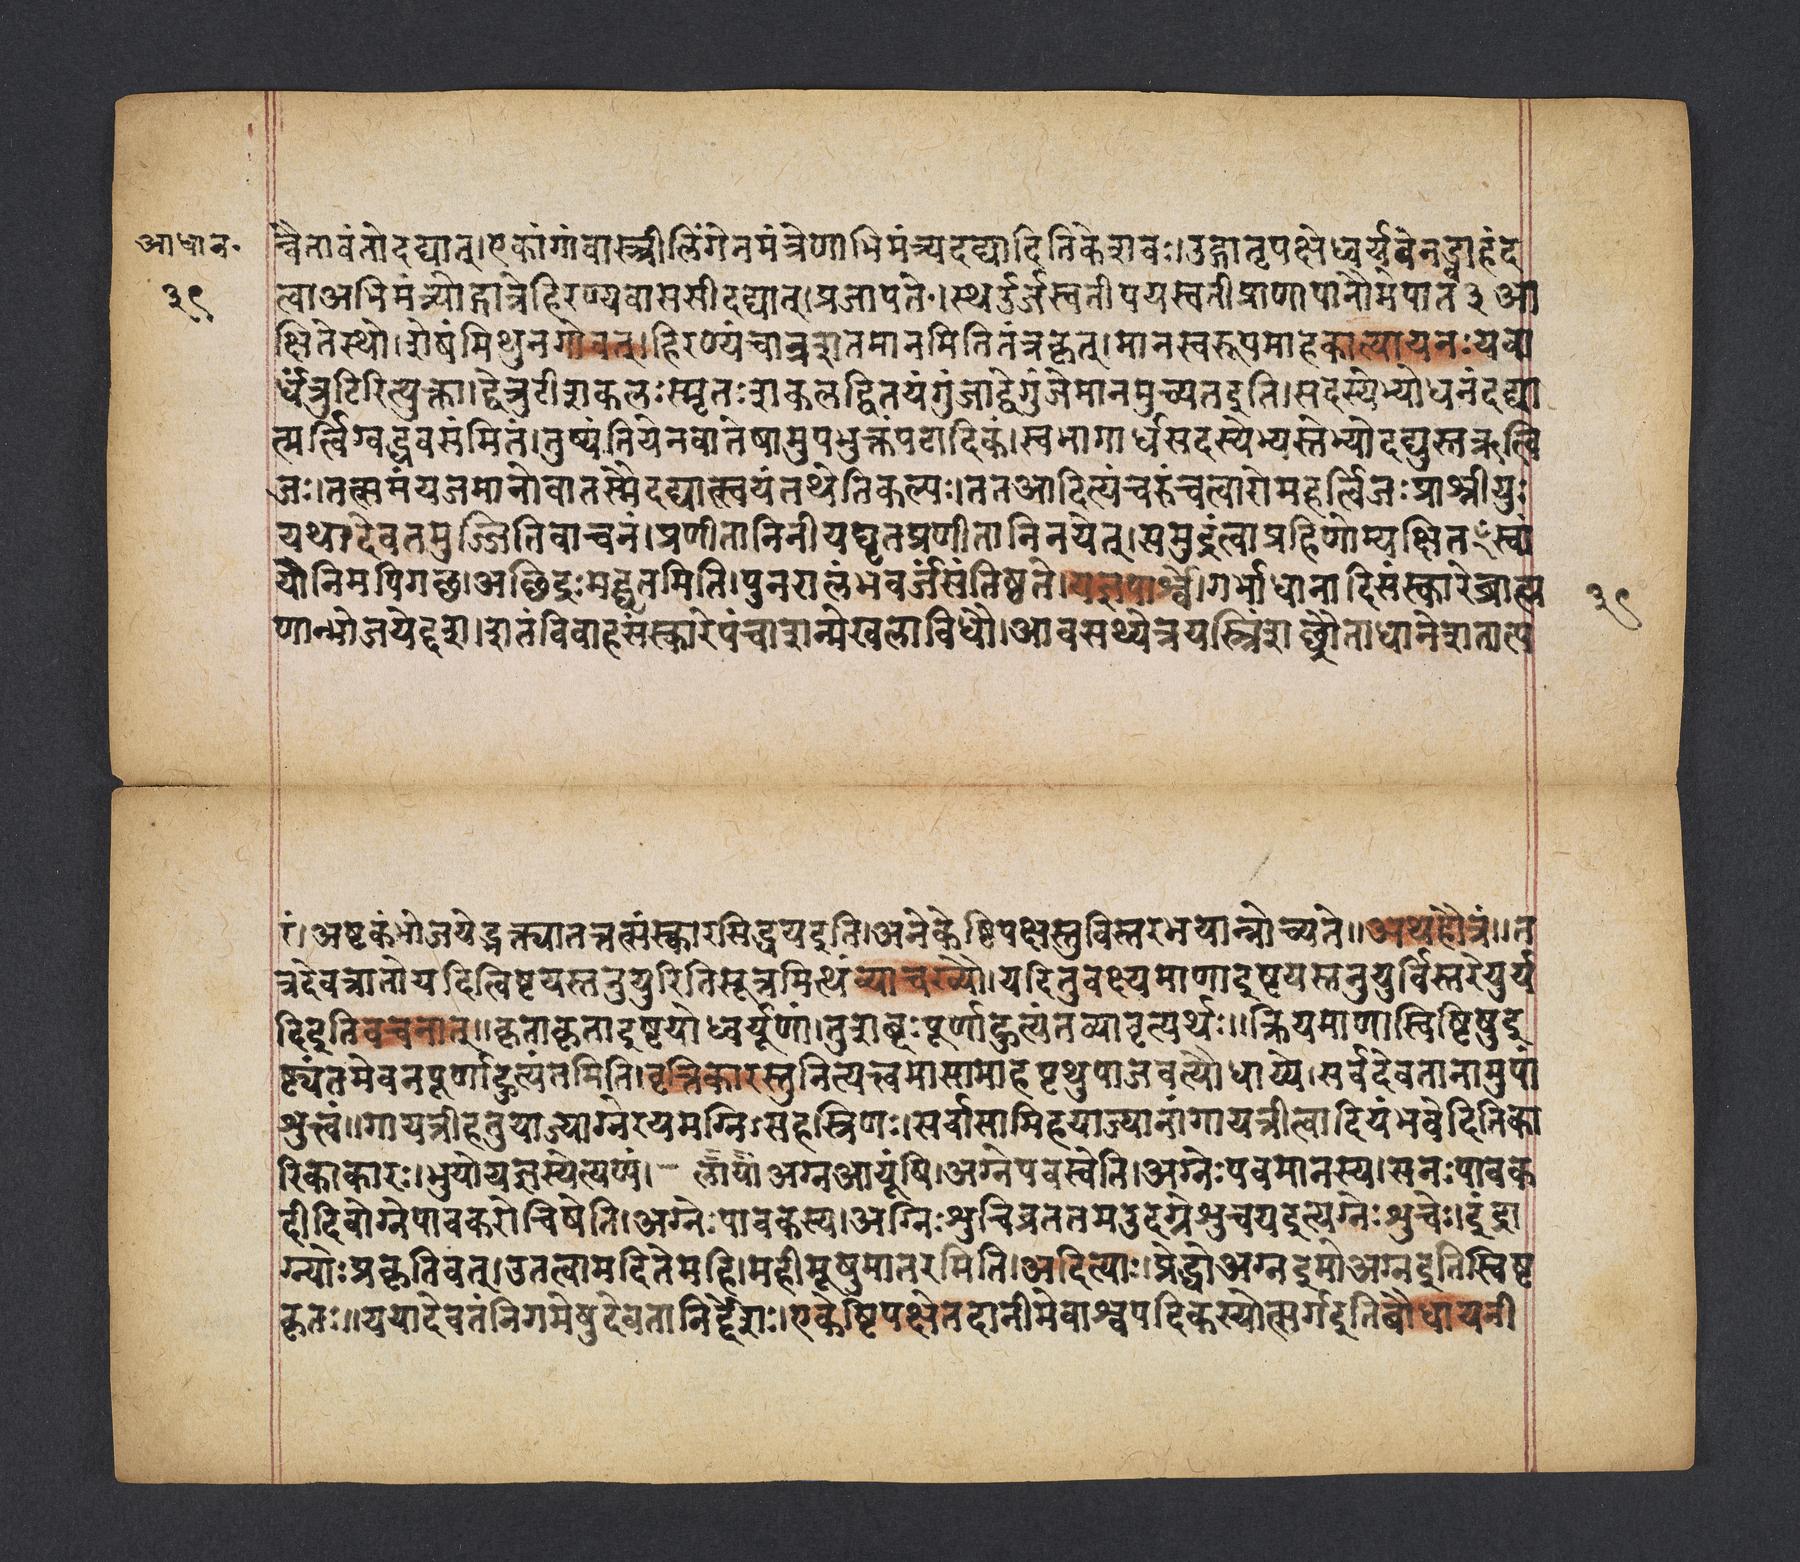 आधान॰
३९
न्वैतावंतोदद्यात्।एकांगांवास्त्रीलिंगेनमंत्रेणाभिमंत्र्यदद्यादितिकेशवः।उद्गातृपक्षेध्वर्यवेनड्वाहंद
त्वाअभिमंत्र्योद्गात्रेहिरण्यवाससीदद्यात्।प्रजापते॰।स्थऊर्जस्वतीपयस्वतीप्राणापानौमेपातं३आ
क्षितेस्थो।शेषंमिथुनगौवत्।हिरण्यंचात्रशतमानमितितंत्रकृत्।मानस्वरूपमाहकात्यायनःयवा
र्धंत्रुटिरित्युक्ता।द्वेत्रुटीशकलःस्मृतःशकलद्वितयंगुंजाद्वेगुंजेमानमुच्यतइति।सदस्येभ्योधनंदद्या
त्मर्त्विग्वद्धवसंमितं।तुष्यंतियेनवातेषामुपभुक्तंपटादिकं।स्वभागार्धसदस्येभ्यस्तेभ्योदद्युस्तऋत्वि
जः।तत्समंयजमानोवातस्मैदद्यात्स्वयंतथेतिकल्पः।ततआदित्यंचरुंचत्वारोमहर्त्विजःप्राश्नीयुः
यथादेवतमुज्जितिवाचनं।प्रणीतानिनीयघृतप्रणीतानिनयेत्।समुद्रंत्वाप्रहिणोम्यक्षितःस्वां
योनिमपिगछ।अछिद्रःमद्धृतमिति।पुनरालंभवर्जंसंतिष्ठते।यज्ञपार्श्वे।गर्भाधानादिसंस्कारेब्राह्म
णान्भोजयेद्दश।शतंविवाहसंस्कारेपंचाशन्मेखलाविधौ।आवसथ्येत्रयस्त्रिंशछ्रौताधानेशतात्प
३९
रं।अष्टकंभोजयेद्भक्त्यातत्तत्संस्कारसिद्धयइति।अनेकेष्टिपक्षस्तुविस्तरभयान्नोच्यते॥अथहौत्रं॥त
त्रदेवत्रातोयदित्विष्टयस्तनुयुरितिसूत्रमित्थंव्याचख्यौ।यदितुवक्ष्यमाणाइष्टयस्तनुयुर्विस्तरेयुर्य
दिइतिवचनात्॥कृताकृताइष्टयोध्वर्यूणां।तुशब्दःपूर्णाहुत्यंतव्यावृत्यर्थः॥क्रियमाणास्विष्टिषुइ
ष्ट्यंतमेवनपूर्णाहुत्यंतमिति।वृत्तिकारस्तुनित्यत्वमासामाहपृथुपाजवत्यौधाय्ये।सर्वदेवतानामुपां
श्रुत्वं॥गायत्रीहतुयाज्याग्नेरयमग्निःसहस्रिणः।सर्वासामिहयाज्यानांगायत्रीत्वादियंभवेदितिका
रिकाकारः।भुवोयज्ञस्येत्यप्यं।- अग्नआयूंषि।अग्नेपवस्वेति।अग्नेःपवमानस्य।सनःपावक
दीदिवोग्नेपावकरोचिषेति।अग्नेःपावकस्य।अग्निःश्रुचिव्रततमउदग्नेश्रुचयइत्यग्नेःश्रुचेः।इंद्रा
ग्न्योःप्रकृतिवत्।उतत्वामदितेमहि।महीमूषुमातरमिति।अदित्याः।प्रेद्धोअग्नइमोअग्नइतिस्विष्ट
कृतः॥यथादेवतंनिगमेषुदेवतानिर्द्देशः।एकेष्टिपक्षेतदानीमेवाश्वपदिकस्योत्सर्गइतिबौधायनी